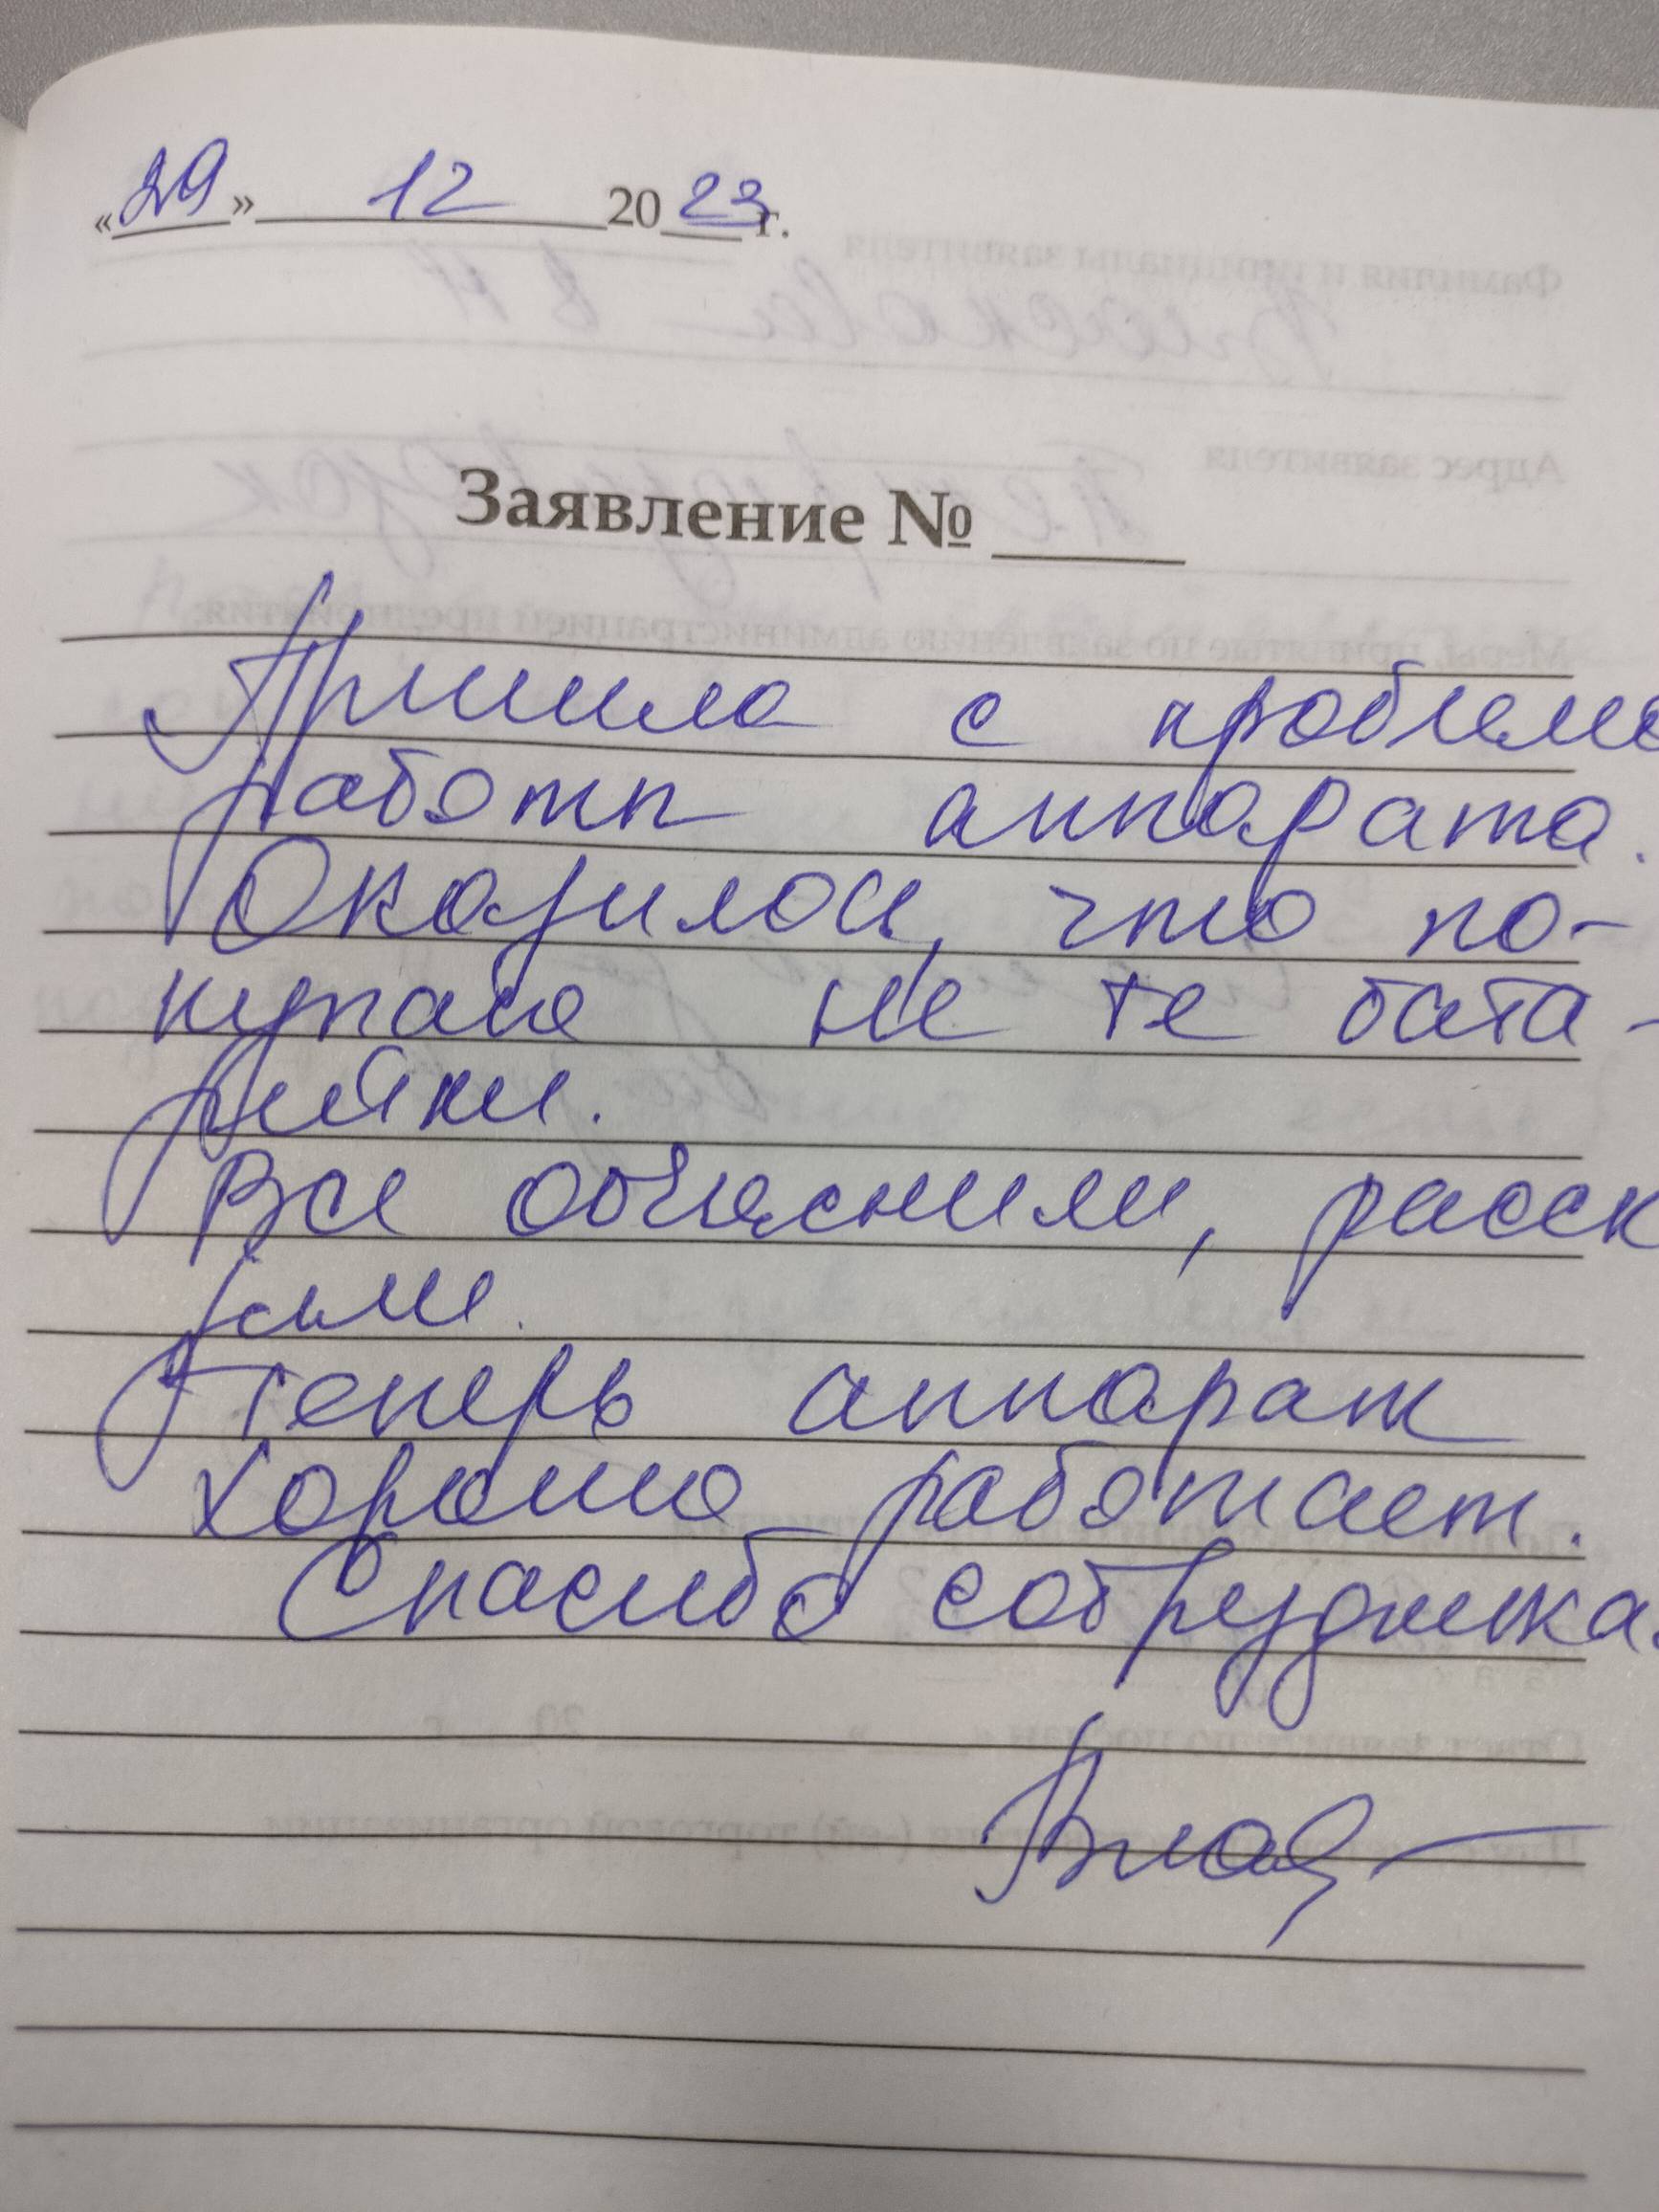 «29» 12 2023 г.
Заявление № ____
Пришла с проблемо
работы аппарата.
Оказалось, что по-
купала не те бата-
рейки.
Все объяснили, расск
зали.
Теперь аппарат
хорошо работает.
Спасибо сотрудника